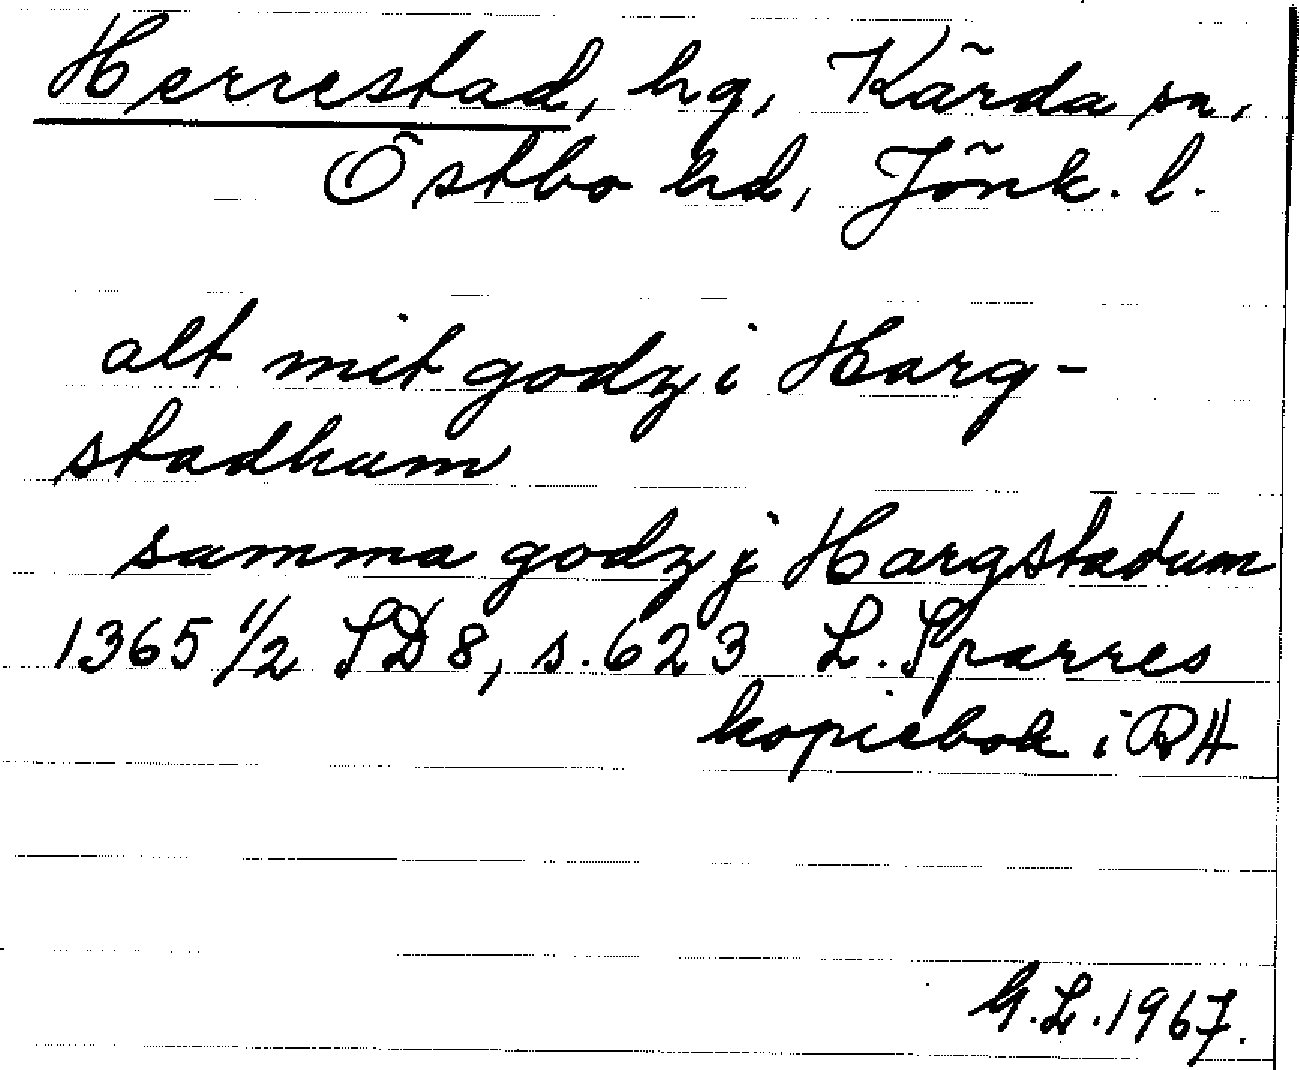 Herrestad, hg, Kärda sn,
Östbo hd, Jönk. l.
alt mit godz i Harg-
stadhum
samma godz j Hargstadum
1365 1/2 SD 8, s. 623 L. Sparres
kopiebok i RA
G.L. 1967.